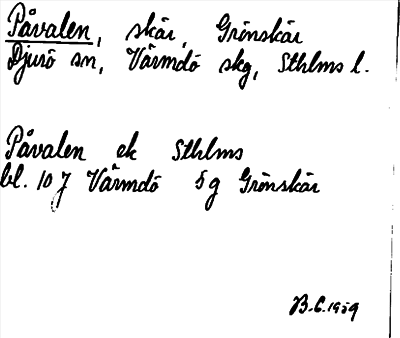 Påvalen, skär, Grönskär
Djurö sn, Värmdö skg, Sthlms l.
Påvalen ek Sthlms
bl. 10 J Värmdö 5 g Grönskär
B.C. 1959